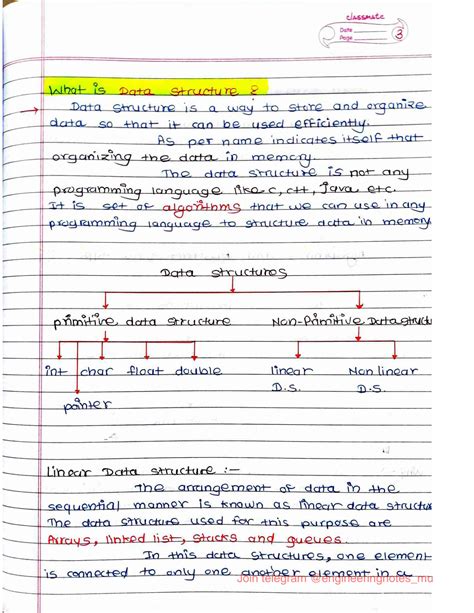 classmate
Date
Page 3
What is Data Structure ?
Data structure is a way to store and organize
data so that it can be used efficiently.
As per name indicates itself that
organizing the data in memory.
The data structure is not any
programming language like c, c++, Java etc.
It is set of algorithms that we can use in any
programming language to structure data in memory
Data structures
primitive data structure Non-Primitive Data struct
int char float double linear Non linear
pointer D.S. D.S.
Linear Data structure :-
The arrangement of data in the
sequential manner is known as linear data structu
The data structure used for this purpose are
Arrays, linked list, stacks and queues.
In this data structures, one element
is connected to only one another element in a
Join telegram @engineeringnotes_mu